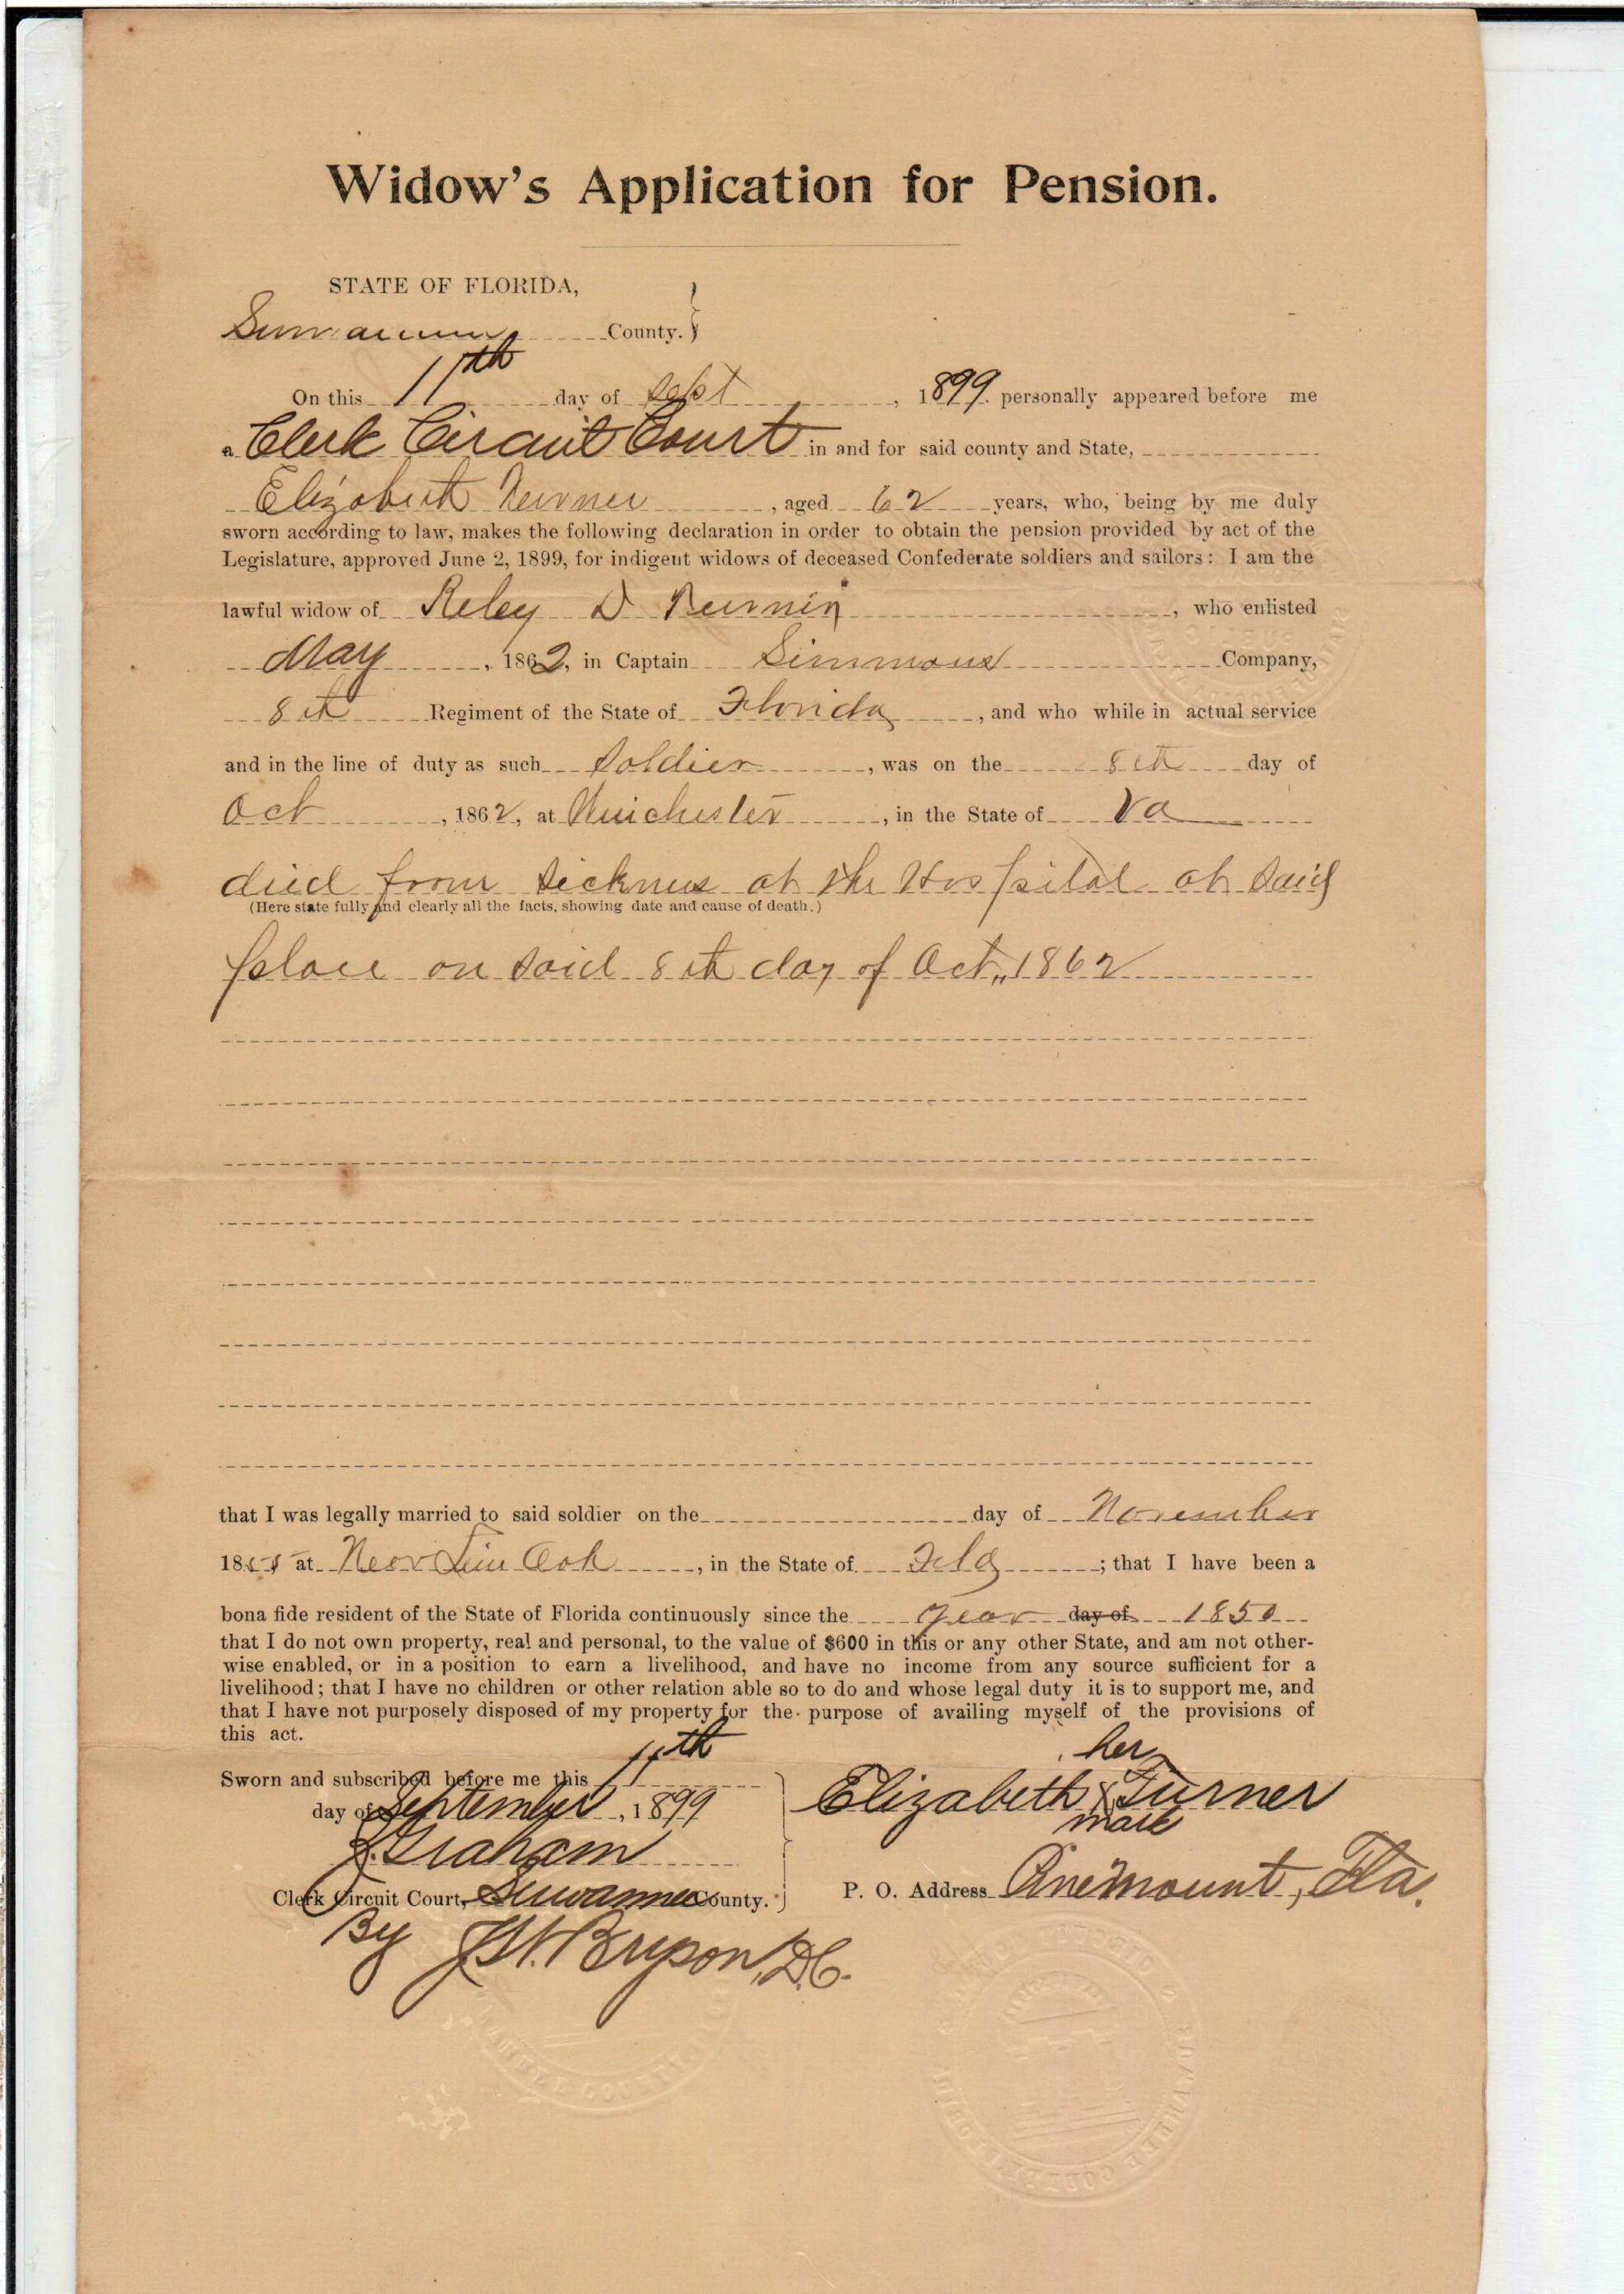 Widow's Application for Pension.
STATE OF FLORIDA,
Suwannee County. }
On this 11th day of Sept, 1899. personally appeared before me
a Clerk Circuit Court in and for said county and State,
Elizabeth Turner, aged 62 years, who, being by me duly
sworn according to law, makes the following declaration in order to obtain the pension provided by act of the
Legislature, approved June 2, 1899, for indigent widows of deceased Confederate soldiers and sailors: I am the
lawful widow of Reley D Turner, who enlisted
May, 1862, in Captain Simmons Company,
8th Regiment of the State of Florida, and who while in actual service
and in the line of duty as such Soldier, was on the 8th day of
Oct, 1862, at Winchester, in the State of Va
died from sickness at the Hospital at said
(Here state fully and clearly all the facts, showing date and cause of death.)
place on said 8th day of Oct,, 1862
that I was legally married to said soldier on the day of November
1855 at Near Live Oak, in the State of Fla; that I have been a
bona fide resident of the State of Florida continuously since the year day of 1850
that I do not own property, real and personal, to the value of $600 in this or any other State, and am not other-
wise enabled, or in a position to earn a livelihood, and have no income from any source sufficient for a
livelihood; that I have no children or other relation able so to do and whose legal duty it is to support me, and
that I have not purposely disposed of my property for the purpose of availing myself of the provisions of
this act.
Sworn and subscribed before me this 11th
day of September, 1899
Graham
Clerk Circuit Court, Suwannee County.
By J.W. Bryson, D.C.
her
Elizabeth X Turner
mark
P. O. Address Pinemount, Fla.